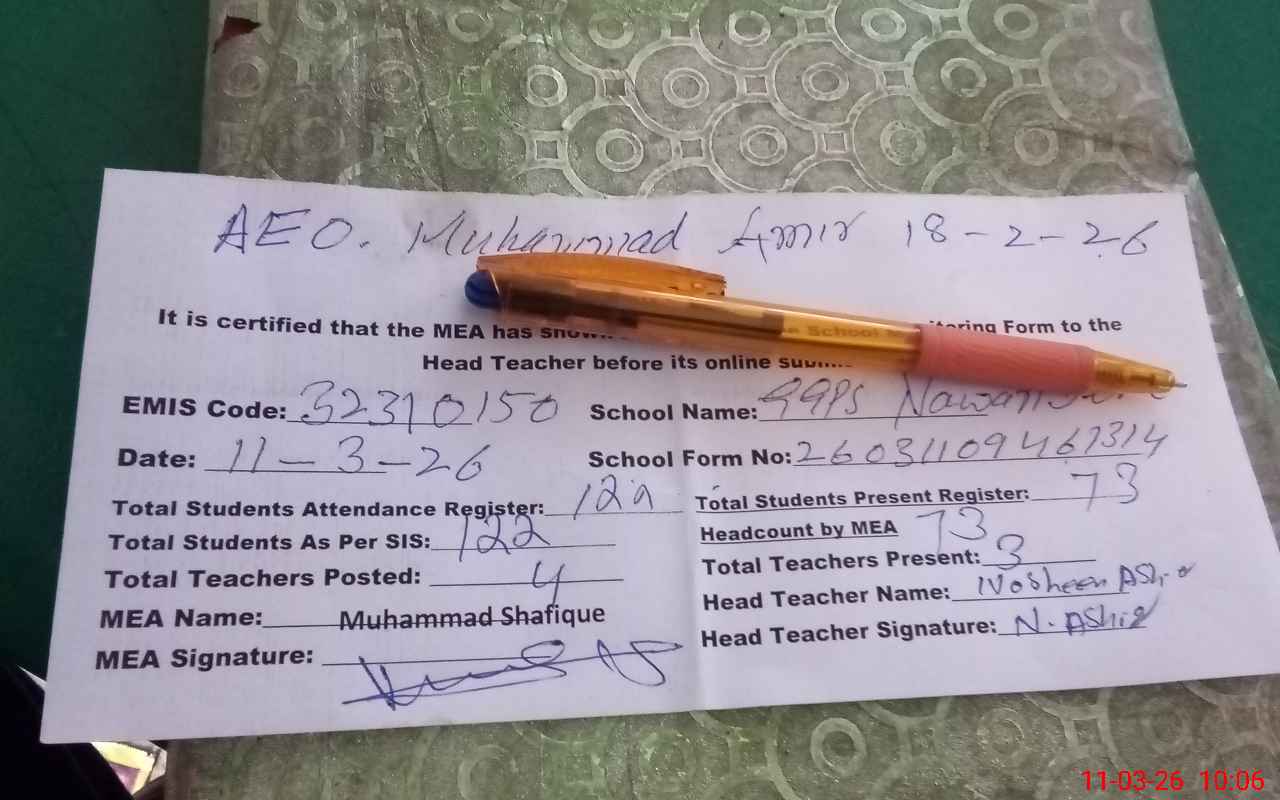 AEO. Muhammad Amir 18-2-26
It is certified that the MEA has shown School Monitoring Form to the
Head Teacher before its online
EMIS Code: 32310150 School Name: GGPS
Date: 11-3-26 School Form No: 26031109467314
Total Students Attendance Register: 122 Total Students Present Register: 73
Total Students As Per SIS: 122 Headcount by MEA 73
Total Teachers Posted: 4 Total Teachers Present: 3
MEA Name: Muhammad Shafique Head Teacher Name: Nosheen
MEA Signature: Head Teacher Signature: N.
11-03-26 10:06